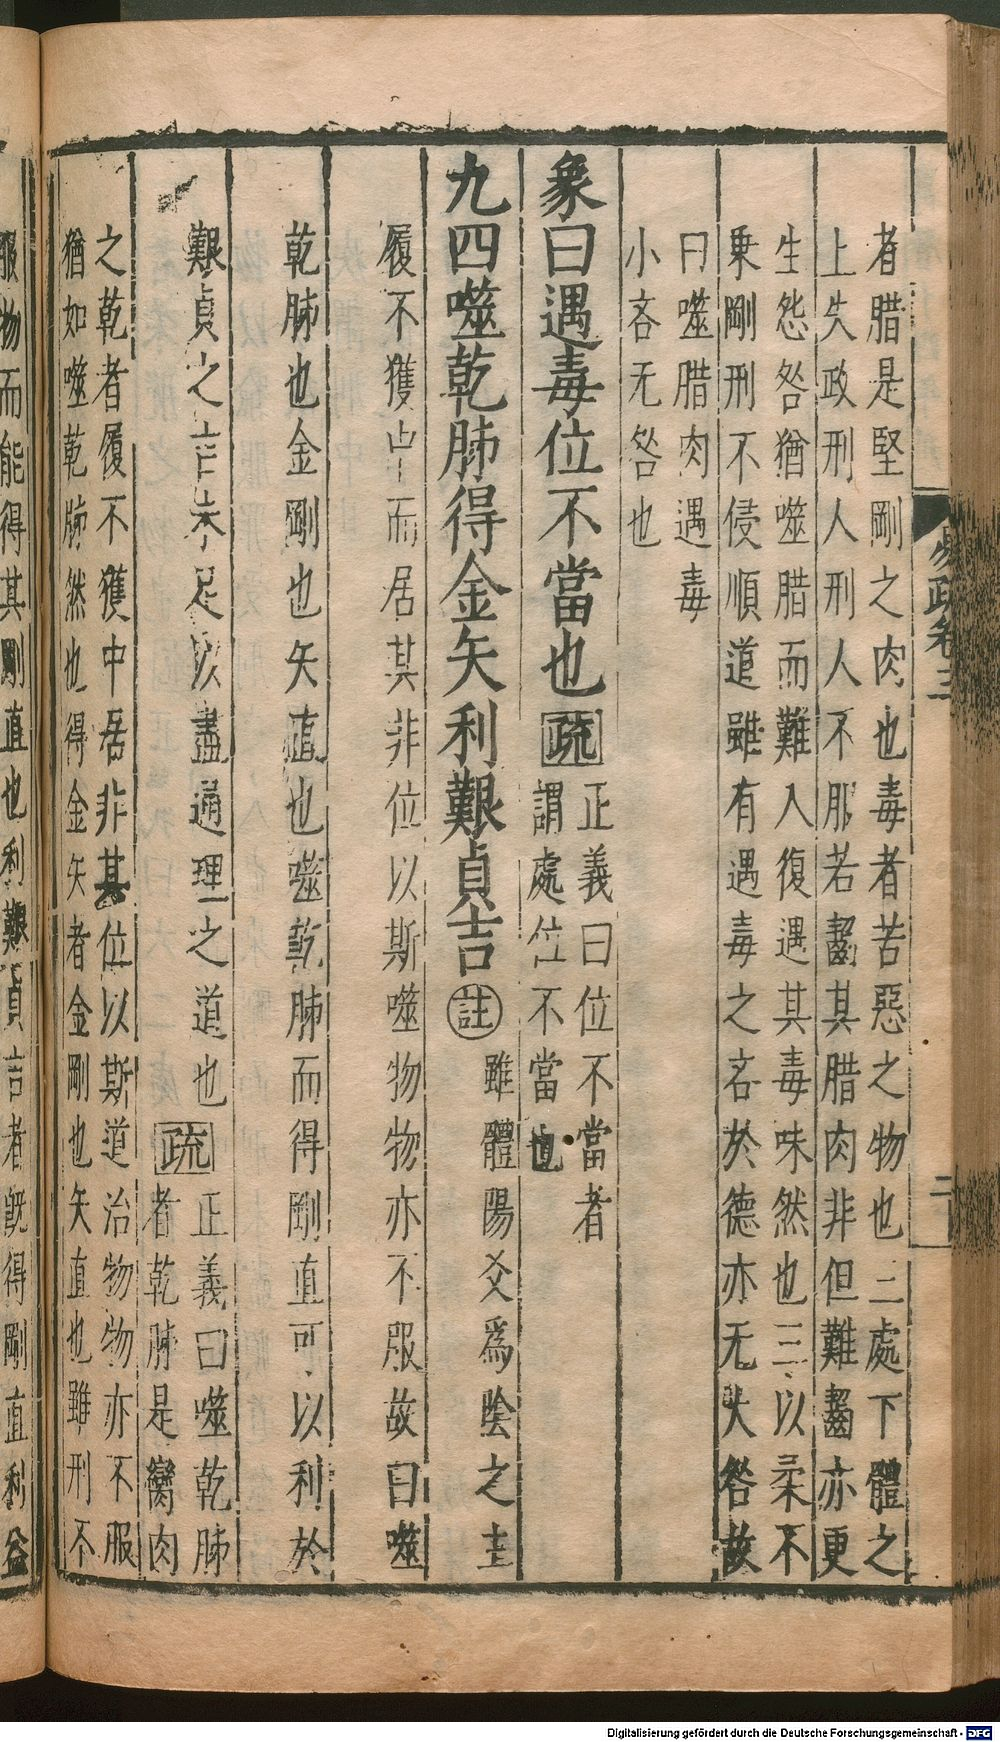 者腊是堅剛之肉也毒者苦惡之物也三處下體之
上失政刑人刑人不服若齧其腊肉非但難齧亦更
生怨咎猶噬腊而難入復遇其毒味然也三以柔不
乗剛刑不侵順道雖有遇毒之吝於德亦无大咎故
曰噬腊肉遇毒
小吝无咎也
象曰遇毒位不當也疏
正義曰位不當者
謂處位不當也
九四噬乾胏得金矢利艱貞吉註
雖體陽爻爲陰之主
履不獲中而居其非位以斯噬物物亦不服故曰噬
乾胏也金剛也矢直也噬乾胏而得剛直可以利於
艱貞之吉未足以盡通理之道也疏
正義曰噬乾胏
者乾胏是臠肉
之乾者履不獲中居非其位以斯道治物物亦不服
猶如噬乾胏然也得金矢者金剛也矢直也雖刑不
服物而能得其剛直也利艱貞吉者旣得剛直利益
易疏卷三
二
Digitalisierung gefördert durch die Deutsche Forschungsgemeinschaft - DFG